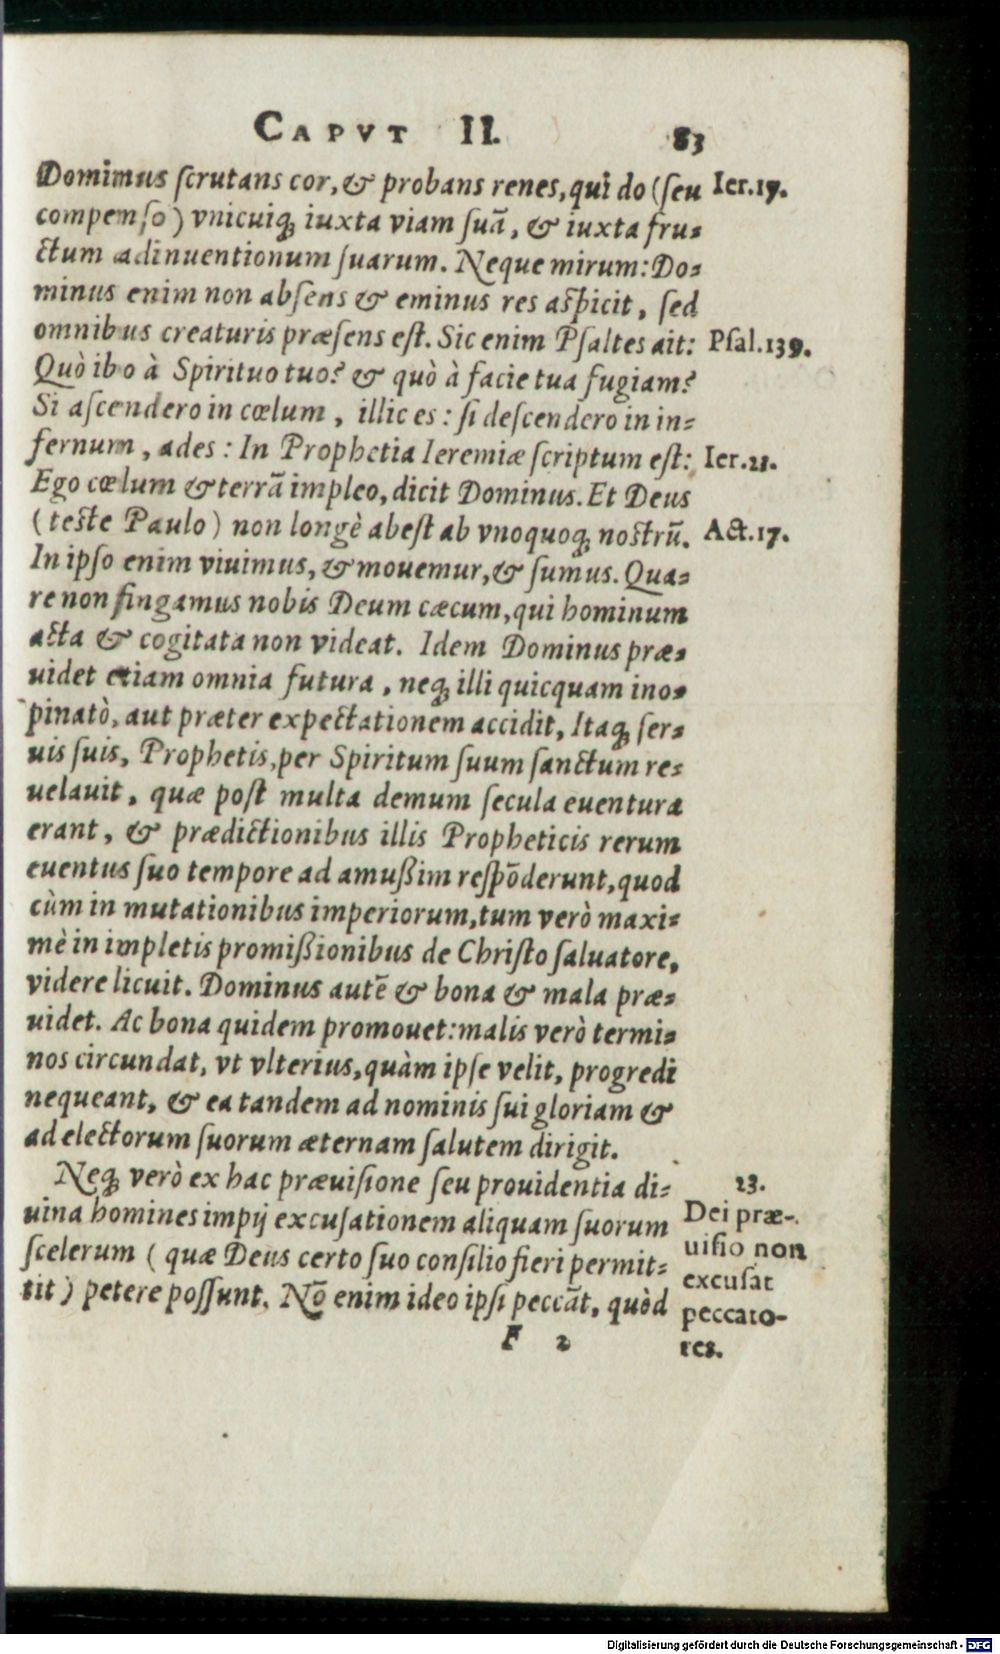 CAPVT II. 83
Domimus ſcrutans cor, & probans renes, qui do (ſeu Ier.17.
compenſo) vnicuiq́ iuxta viam ſuã, & iuxta fru-
ctum adinuentionum ſuarum. Neque mirum: Do-
minus enim non abſens & eminus res aſpicit, ſed
omnibus creaturis præſens eſt. Sic enim Pſaltes ait: Pſal.139.
Quò ibo à Spirituo tuo? & quò à facie tua fugiam?
Si aſcendero in cœlum, illic es: ſi deſcendero in in-
fernum, ades: In Prophetia Ieremiæ ſcriptum eſt: Ier.21.
Ego cœlum & terrã impleo, dicit Dominus. Et Deus
(teſte Paulo) non longè abeſt ab vnoquoq́ noſtrũ. Act.17.
In ipſo enim viuimus, & mouemur, & ſumus. Qua-
re non fingamus nobis Deum cæcum, qui hominum
acta & cogitata non videat. Idem Dominus præ-
uidet etiam omnia futura, neq́ illi quicquam ino-
pinatò, aut præter expectationem accidit, Itaq́ ſer-
uis ſuis, Prophetis, per Spiritum ſuum ſanctum re-
uelauit, quæ poſt multa demum ſecula euentura
erant, & prædictionibus illis Propheticis rerum
euentus ſuo tempore ad amußim reſpõderunt, quod
cùm in mutationibus imperiorum, tum verò maxi-
mè in impletis promißionibus de Chriſto ſaluatore,
videre licuit. Dominus autẽ & bona & mala præ-
uidet. Ac bona quidem promouet: malis verò termi-
nos circundat, vt vlterius, quàm ipſe velit, progredi
nequeant, & ea tandem ad nominis ſui gloriam &
ad electorum ſuorum æternam ſalutem dirigit.
Neq́ verò ex hac præuiſione ſeu prouidentia di-
uina homines impij excuſationem aliquam ſuorum
ſcelerum (quæ Deus certo ſuo conſilio fieri permit-
tit) petere poſſunt. Nõ enim ideo ipſi peccãt, quòd
23.
Dei præ-
uiſio non
excuſat
peccato-
res.
F 2
Digitalisierung gefördert durch die Deutsche Forschungsgemeinschaft - DFG